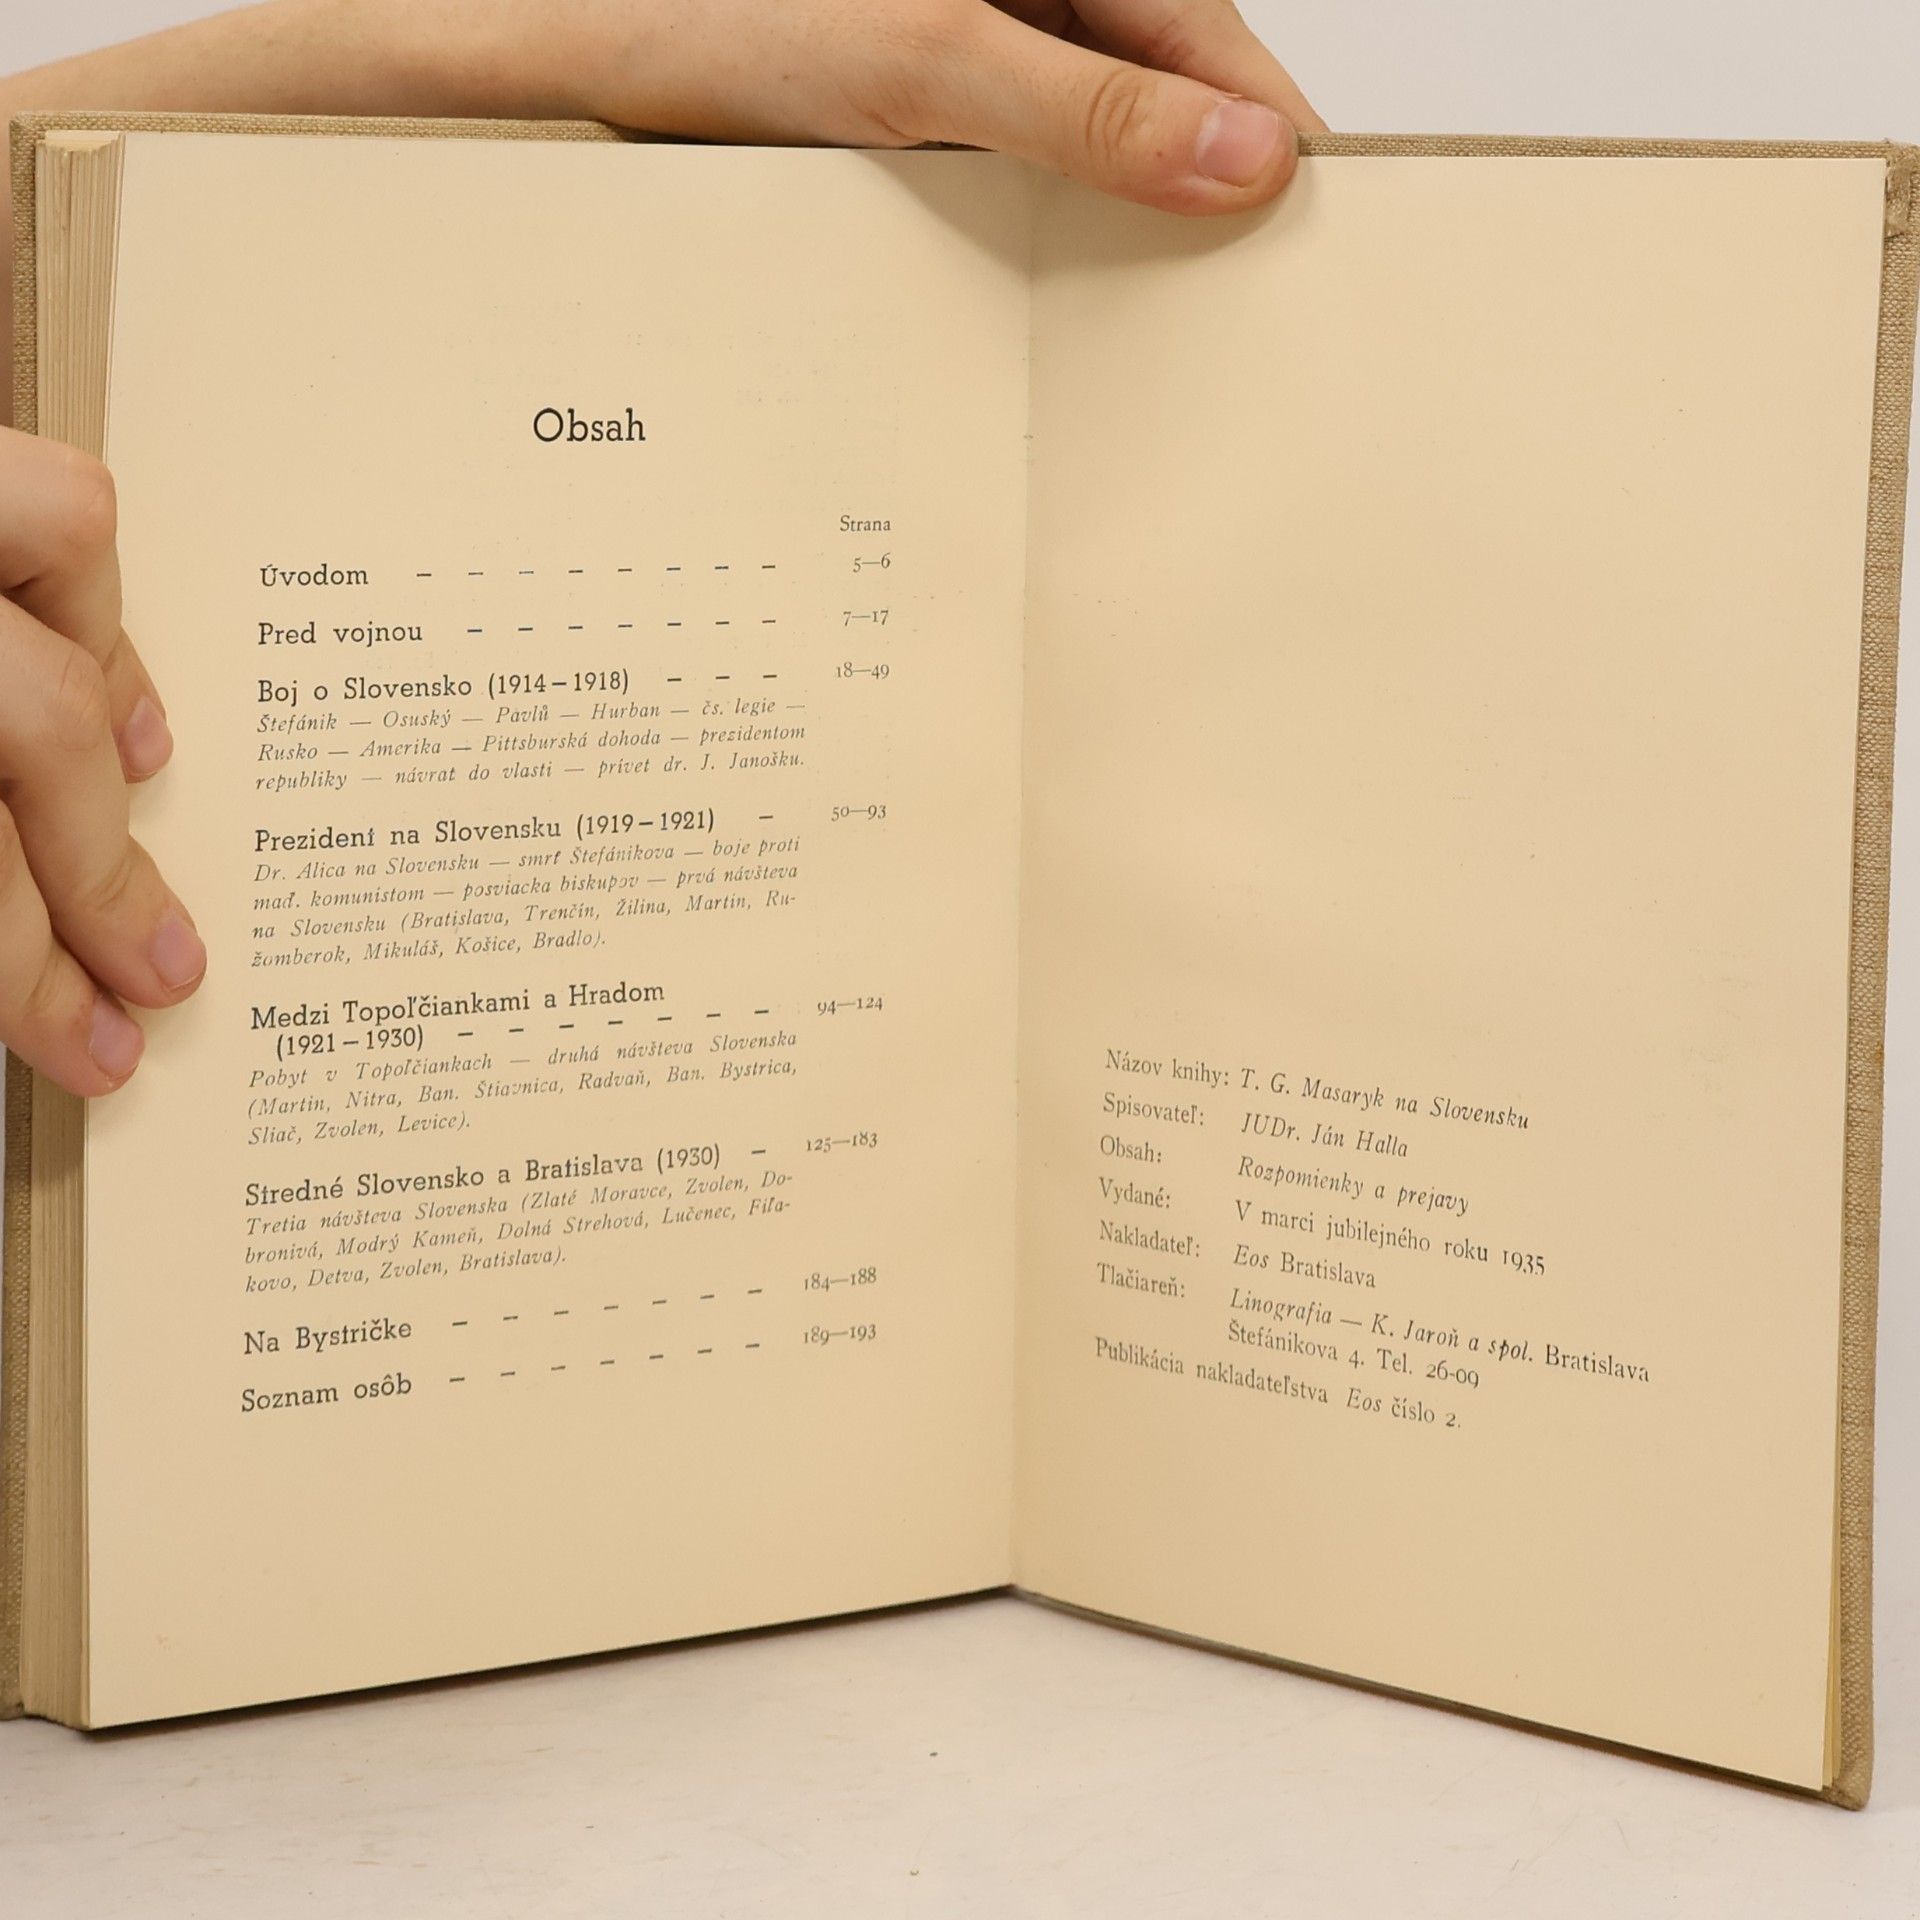 Obsah
Strana
Úvodom – – – – – – – – 5—6
Pred vojnou – – – – – – – 7—17
Boj o Slovensko (1914–1918) – – – 18—49
Štefánik — Osuský — Pavlů — Hurban — čs. legie —
Rusko — Amerika — Pittsburská dohoda — prezidentom
republiky — návrat do vlasti — prívet dr. J. Janošku.
Prezident na Slovensku (1919–1921) – 50—93
Dr. Alica na Slovensku — smrť Štefánikova — boje proti
maď. komunistom — posviacka biskupov — prvá návšteva
na Slovensku (Bratislava, Trenčín, Žilina, Martin, Ru-
žomberok, Mikuláš, Košice, Bradlo).
Medzi Topoľčiankami a Hradom
(1921–1930) – – – – – – – 94—124
Pobyt v Topoľčiankach — druhá návšteva Slovenska
(Martin, Nitra, Ban. Štiavnica, Radvaň, Ban. Bystrica,
Sliač, Zvolen, Levice).
Stredné Slovensko a Bratislava (1930) – 125—183
Tretia návšteva Slovenska (Zlaté Moravce, Zvolen, Do-
bronivá, Modrý Kameň, Dolná Strehová, Lučenec, Fiľa-
kovo, Detva, Zvolen, Bratislava).
Na Bystričke – – – – – – – 184—188
Soznam osôb – – – – – – – 189—193
Názov knihy: T. G. Masaryk na Slovensku
Spisovateľ: JUDr. Ján Halla
Obsah: Rozpomienky a prejavy
Vydané: V marci jubilejného roku 1935
Nakladateľ: Eos Bratislava
Tlačiareň: Linografia — K. Jaroň a spol. Bratislava
Štefánikova 4. Tel. 26-09
Publikácia nakladateľstva Eos číslo 2.